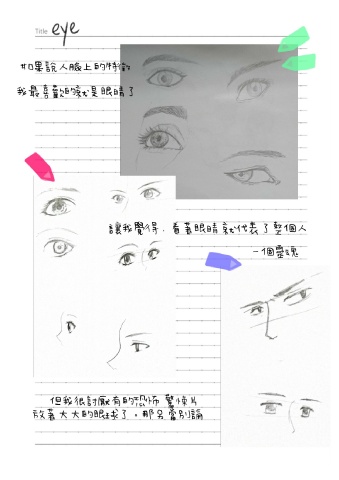 Title eye
如果說人臉上的特徵
我最喜歡的就是眼睛了
讓我覺得，看著眼睛就代表了整個人
一個靈魂
但我很討厭有的恐怖驚悚片
放著大大的眼球了，那另當別論